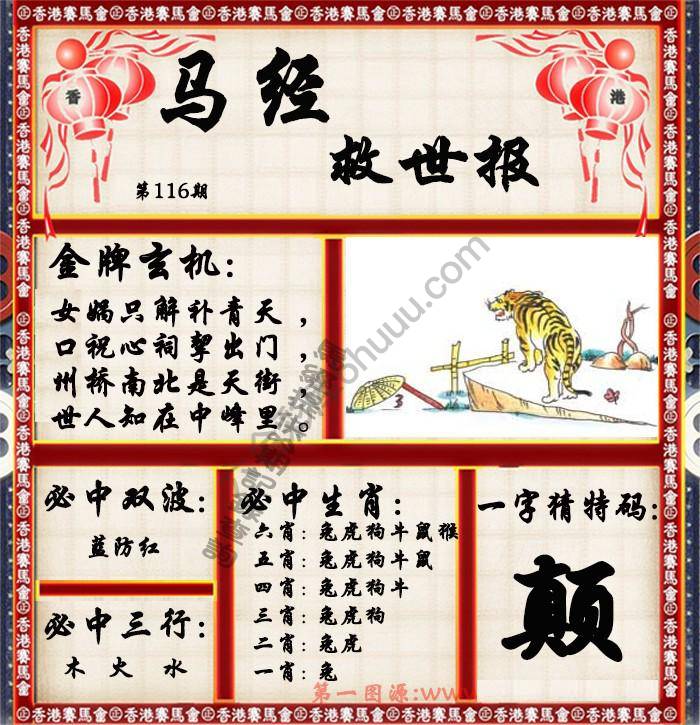 香港賽馬會
香 港
马经
救世报
第116期
金牌玄机:
女娲只解补青天，
口祝心祠挈出门，
州桥南北是天街，
世人知在中峰里。
3
必中双波:
蓝防红
必中三行:
木 火 水
必中生肖:
六肖: 兔虎狗牛鼠猴
五肖: 兔虎狗牛鼠
四肖: 兔虎狗牛
三肖: 兔虎狗
二肖: 兔虎
一肖: 兔
一字猜特码:
颠
第一图源:www